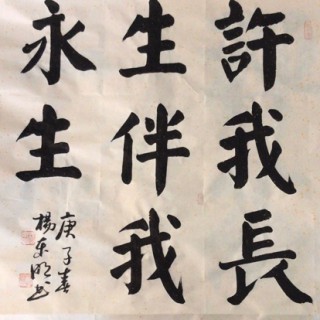 許我長
生伴我
永生
庚子春
楊東明书